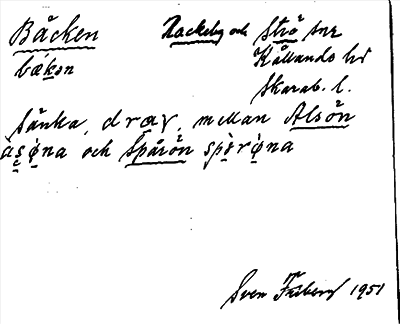 Bäcken Rackeby och Strö snr
bækən Kållands hd
Skarab. l.
sänka, drag, mellan Alsön
àsøna och Spårön spèrøna
Sven Friberg 1951